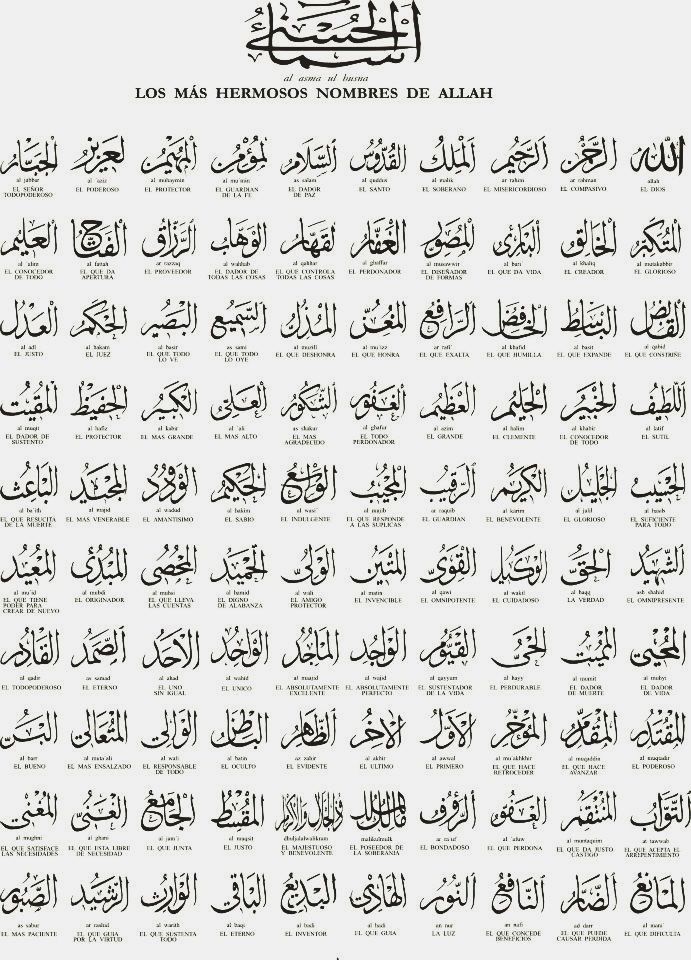 أسماء الحسنى
al asma ul husna
LOS MÁS HERMOSOS NOMBRES DE ALLAH
الله
allah
EL DIOS
الرحمن
ar rahman
EL COMPASIVO
الرحيم
ar rahim
EL MISERICORDIOSO
الملك
al malik
EL SOBERANO
القدوس
al quddus
EL SANTO
السلام
as salam
EL DADOR
DE PAZ
المؤمن
al mu min
EL GUARDIAN
DE LA FE
المهيمن
al muhaymin
EL PROTECTOR
العزيز
al 'aziz
EL PODEROSO
الجبار
al jabbar
EL SEÑOR
TODOPODEROSO
المتكبر
al mutakabbir
EL GLORIOSO
الخالق
al khaliq
EL CREADOR
البارئ
al bari'
EL QUE DA VIDA
المصور
al musawwir
EL DISEÑADOR
DE FORMAS
الغفار
al ghaffar
EL PERDONADOR
القهار
al qahhar
EL QUE CONTROLA
TODAS LAS COSAS
الوهاب
al wahhab
EL DADOR DE
TODAS LAS COSAS
الرزاق
ar razzaq
EL PROVEEDOR
الفتاح
al fattah
EL QUE DA
APERTURA
العليم
al 'alim
EL CONOCEDOR
DE TODO
القابض
al qabid
EL QUE CONSTRIÑE
الباسط
al basit
EL QUE EXPANDE
الخافض
al khafid
EL QUE HUMILLA
الرافع
ar rafi'
EL QUE EXALTA
المعز
al mu'izz
EL QUE HONRA
المذل
al muzill
EL QUE DESHONRA
السميع
as sami
EL QUE TODO
LO OYE
البصير
al basir
EL QUE TODO
LO VE
الحكم
al hakam
EL JUEZ
العدل
al adl
EL JUSTO
اللطيف
al latif
EL SUTIL
الخبير
al khabir
EL CONOCEDOR
DE TODO
الحليم
al halim
EL CLEMENTE
العظيم
al azim
EL GRANDE
الغفور
al ghafur
EL TODO
PERDONADOR
الشكور
as shakar
EL MAS
AGRADECIDO
العلي
al 'ali
EL MAS ALTO
الكبير
al kabir
EL MAS GRANDE
الحفيظ
al hafiz
EL PROTECTOR
المقيت
al muqit
EL DADOR DE
SUSTENTO
الحسيب
al hasib
EL SUFICIENTE
PARA TODO
الجليل
al jalil
EL GLORIOSO
الكريم
al karim
EL BENEVOLENTE
الرقيب
ar raquib
EL GUARDIAN
المجيب
al mujib
EL QUE RESPONDE
A LAS SUPLICAS
الواسع
al wasi'
EL INDULGENTE
الحكيم
al hakim
EL SABIO
الودود
al wadud
EL AMANTISIMO
المجيد
al majid
EL MAS VENERABLE
الباعث
al ba'ith
EL QUE RESUCITA
DE LA MUERTE
الشهيد
ash shahid
EL OMNIPRESENTE
الحق
al haqq
LA VERDAD
الوكيل
al wakil
EL CUIDADOSO
القوي
al qawi
EL OMNIPOTENTE
المتين
al matin
EL INVENCIBLE
الولي
al wali
EL AMIGO
PROTECTOR
الحميد
al hamid
EL DIGNO
DE ALABANZA
المحصي
al muhsi
EL QUE LLEVA
LAS CUENTAS
المبدئ
al mubdi
EL ORIGINADOR
المعيد
al mu'id
EL QUE TIENE
PODER PARA
CREAR DE NUEVO
المحيي
al muhyi
EL DADOR
DE VIDA
المميت
al mumit
EL DADOR
DE MUERTE
الحي
al hayy
EL PERDURABLE
القيوم
al qayyum
EL SUSTENTADOR
DE LA VIDA
الواجد
al wajid
EL ABSOLUTAMENTE
PERFECTO
الماجد
al maajid
EL ABSOLUTAMENTE
EXCELENTE
الواحد
al wahid
EL UNICO
الاحد
al ahad
EL UNO
SIN IGUAL
الصمد
as samad
EL ETERNO
القادر
al qadir
EL TODOPODEROSO
المقتدر
al muqtadir
EL PODEROSO
المقدم
al muqaddim
EL QUE HACE
AVANZAR
المؤخر
al mu'akhkhir
EL QUE HACE
RETROCEDER
الأول
al awwal
EL PRIMERO
الآخر
al akhir
EL ULTIMO
الظاهر
az zahir
EL EVIDENTE
الباطن
al batin
EL OCULTO
الوالي
al wali
EL RESPONSABLE
DE TODO
المتعالي
al muta'ali
EL MAS ENSALZADO
البر
al barr
EL BUENO
التواب
at tawwab
EL QUE ACEPTA EL
ARREPENTIMIENTO
المنتقم
al muntaquim
EL QUE DA JUSTO
CASTIGO
العفو
al 'afuw
EL QUE PERDONA
الرؤوف
ar ra'uf
EL BONDADOSO
مالك الملك
malikulmulk
EL POSEEDOR DE
LA SOBERANIA
ذو الجلال والإكرام
dhuljalalwalikram
EL MAJESTUOSO
Y BENEVOLENTE
المقسط
al muqsit
EL JUSTO
الجامع
al jam'i
EL QUE JUNTA
الغني
al ghani
EL QUE ESTA LIBRE
DE NECESIDAD
المغني
al mughni
EL QUE SATISFACE
LAS NECESIDADES
المانع
al mani'
EL QUE DIFICULTA
الضار
ad darr
EL QUE PUEDE
CAUSAR PERDIDA
النافع
an nafi
EL QUE CONCEDE
BENEFICIOS
النور
an nur
LA LUZ
الهادي
al hadi
EL QUE GUIA
البديع
al badi
EL INVENTOR
الباقي
al baqi
EL ETERNO
الوارث
al warith
EL QUE SUSTENTA
TODO
الرشيد
ar rashid
EL QUE GUIA
POR LA VIRTUD
الصبور
as sabur
EL MAS PACIENTE